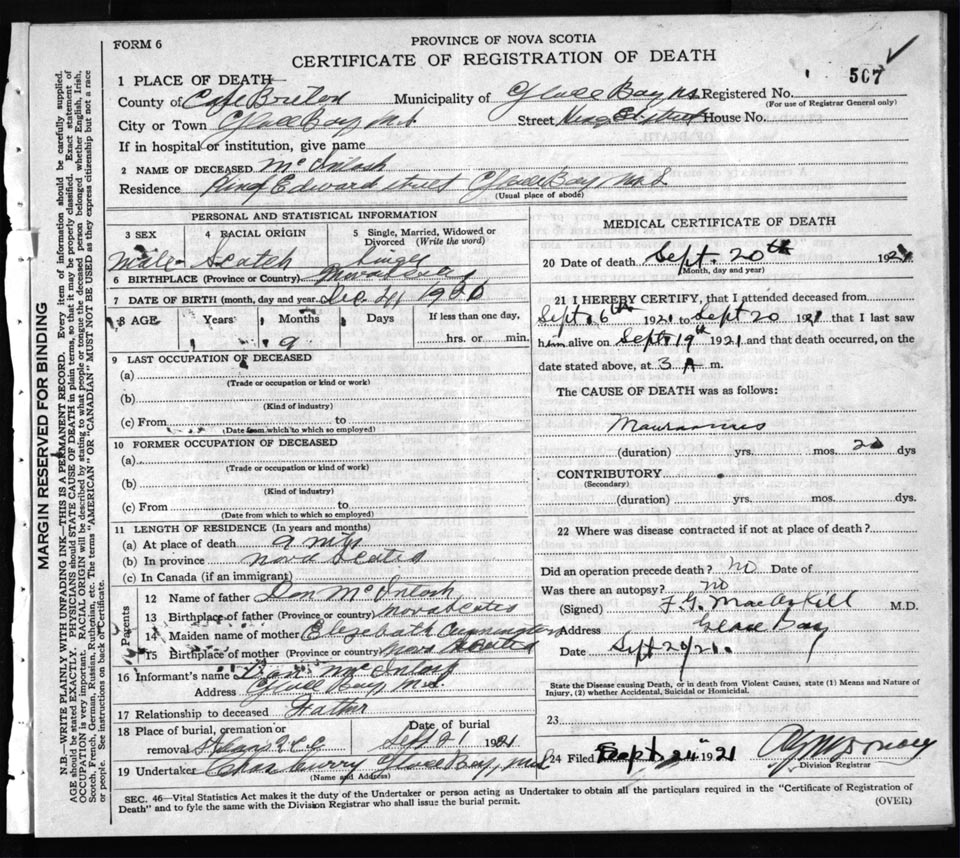 FORM 6
PROVINCE OF NOVA SCOTIA
CERTIFICATE OF REGISTRATION OF DEATH
507
1 PLACE OF DEATH
County of Cape Breton Municipality of Glace Bay N.S Registered No.
(For use of Registrar General only)
City or Town Glace Bay N.S. Street King Ed. street House No.
If in hospital or institution, give name
2 NAME OF DECEASED McIntosh
Residence King Edward street Glace Bay, N.S
(Usual place of abode)
PERSONAL AND STATISTICAL INFORMATION
3 SEX 4 RACIAL ORIGIN 5 Single, Married, Widowed or Divorced (Write the word)
Male Scotch Single
6 BIRTHPLACE (Province or Country) Nova Scotia
7 DATE OF BIRTH (month, day and year) Dec 21 1920
8 AGE Years Months Days If less than one day,
9 hrs. or min.
9 LAST OCCUPATION OF DECEASED
(a)
(Trade or occupation or kind or work)
(b)
(Kind of industry)
(c) From to
(Date from which to which so employed)
10 FORMER OCCUPATION OF DECEASED
(a)
(Trade or occupation or kind of work)
(b)
(Kind of industry)
(c) From to
(Date from which to which so employed)
11 LENGTH OF RESIDENCE (In years and months)
(a) At place of death 9 mths
(b) In province Nova Scotia
(c) In Canada (if an immigrant)
Parents
12 Name of father Dan McIntosh
13 Birthplace of father (Province or country) Nova Scotia
14 Maiden name of mother Elizabeth
15 Birthplace of mother (Province or country) Nova Scotia
16 Informant's name Dan McIntosh
Address Glace Bay N.S.
17 Relationship to deceased Father
18 Place of burial, cremation or removal Date of burial
Sept 21 1921
19 Undertaker Chas Curry Glace Bay, N.S
(Name and Address)
MEDICAL CERTIFICATE OF DEATH
20 Date of death Sept. 20th 1921
(Month, day and year)
21 I HEREBY CERTIFY, that I attended deceased from
Sept 6th 1921 to Sept 20 1921 that I last saw
him alive on Sept 19th 1921 and that death occurred, on the
date stated above, at 3 A m.
The CAUSE OF DEATH was as follows:
(duration) yrs. mos. dys
CONTRIBUTORY
(Secondary)
(duration) yrs. mos. dys.
22 Where was disease contracted if not at place of death?
Did an operation precede death? No Date of
Was there an autopsy? no
(Signed) F.G. MacAskill M.D.
Address Glace Bay
Date Sept 20/21.
State the Disease causing Death, or in death from Violent Causes, state (1) Means and Nature of
Injury, (2) whether Accidental, Suicidal or Homicidal.
23
24 Filed Sept 24" 1921
Division Registrar
SEC. 46—Vital Statistics Act makes it the duty of the Undertaker or person acting as Undertaker to obtain all the particulars required in the "Certificate of Registration of
Death" and to fyle the same with the Division Registrar who shall issue the burial permit.
(OVER)
MARGIN RESERVED FOR BINDING
N.B.—WRITE PLAINLY WITH UNFADING INK—THIS IS A PERMANENT RECORD. Every item of information should be carefully supplied.
AGE should be stated EXACTLY. PHYSICIANS should STATE CAUSE OF DEATH in plain terms, so that it may be properly classified. Exact statement of
OCCUPATION is very important. RACIAL ORIGIN will be described by stating to what people or tongue the deceased person belonged whether English, Irish,
Scotch, French, German, Russian, Ruthenian, etc. The terms "AMERICAN" OR "CANADIAN" MUST NOT BE USED as they express citizenship but not a race
or people. See instructions on back of Certificate.